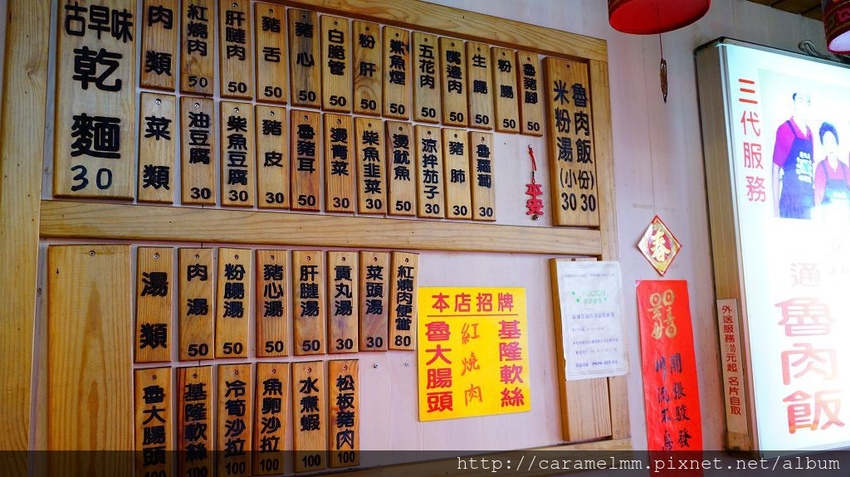 古早味
乾麵
30
肉類
紅燒肉 50
肝腱肉 50
豬舌 50
豬心 50
白脆管 50
粉肝 50
鯊魚煙 50
五花肉 50
嘴邊肉 50
生腸 50
粉腸 50
魯豬腳 50
菜類
油豆腐 30
柴魚豆腐 30
豬皮 30
魯豬耳 50
燙青菜 30
柴魚韭菜 30
燙魷魚 50
涼拌茄子 30
豬肺 30
魯蘿蔔 30
魯肉飯(份) 30
米粉湯(小) 30
平安
湯類
肉湯 50
粉腸湯 50
豬心湯 50
肝腱湯 50
貢丸湯 30
菜頭湯 30
紅燒肉便當 80
魯大腸頭
基隆軟絲 100
冷筍沙拉 100
魚卵沙拉 100
水煮蝦 100
松板豬肉 100
本店招牌
基隆軟絲
紅燒肉
魯大腸頭
春
開張駿發
外送服務
元起 名片自取
三代服務
通
魯肉飯
http://caramelmm.pixnet.net/album